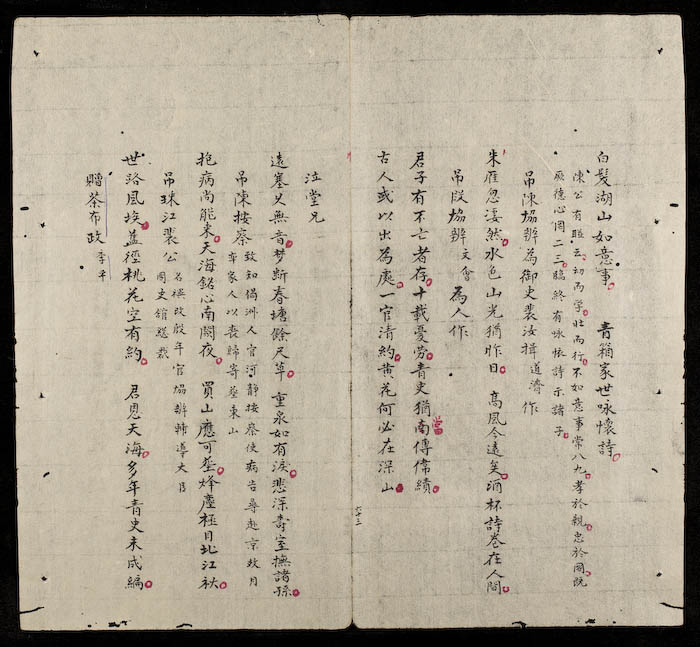 白髮湖山如意事 青箱家世咏懷詩
陳公有賍云幼而学壯而行不如意事常八九孝於親忠於國既
厥德心罔二三臨終有咏懷詩示諸子
吊陳協辦為御史裴汝揖道濟作
朱雁忽淒然水色山光猶昨日 高風今遠矣酒杯詩卷在人間
吊段協辦文會為人作
君子有不亡者存十載憂勞青史猶當南傳偉績
古人或以出為處一官清約黄花何必在深山
六十三
泣堂兄
遠塞乂無音梦斷春塘餘尺草 重泉如有淚悲深壽室撫諸孫
吊陳按察 致知偈洲人官河静按察使病告尋赴京故月
章家人以喪歸寄塟東山
抱病尚能来天海銘心南闕夜 買山應可塟烽塵極目北江秋
吊珠江裴公 名樻改殷年官協辦輔導大臣
國史舘緫裁
世路風埃蓝徑桃花空有約 君恩天海多年青史未成編
贈蔡布政 李平